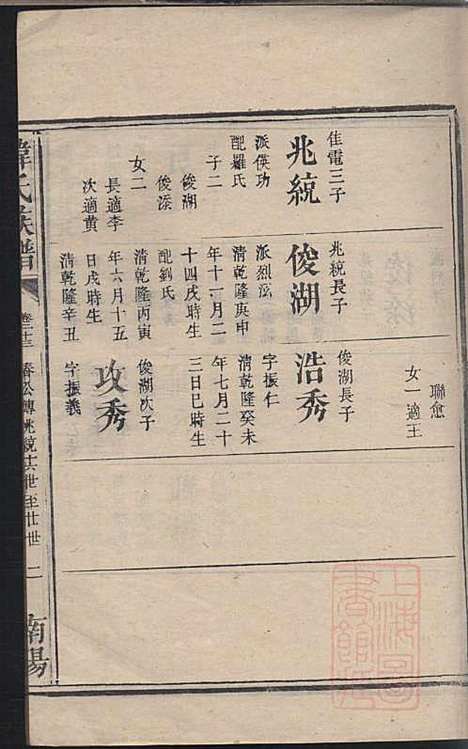 聯愈
女一適王
佳電三子
兆統
派俟功
配羅氏
子二
俊湖
俊添
女二
長適李
次適黃
兆統長子
俊湖
派烈泫
清乾隆庚申
年十一月二
十四戌時生
配劉氏
清乾隆丙寅
年六月十五
日戌時生
清乾隆辛丑
俊湖長子
浩秀
字振仁
清乾隆癸未
年七月二十
三日巳時生
俊湖次子
攻秀
字振義
氏族譜
卷三十三
春公傳兆統十六世至廿世
二
南陽
上海圖書館藏